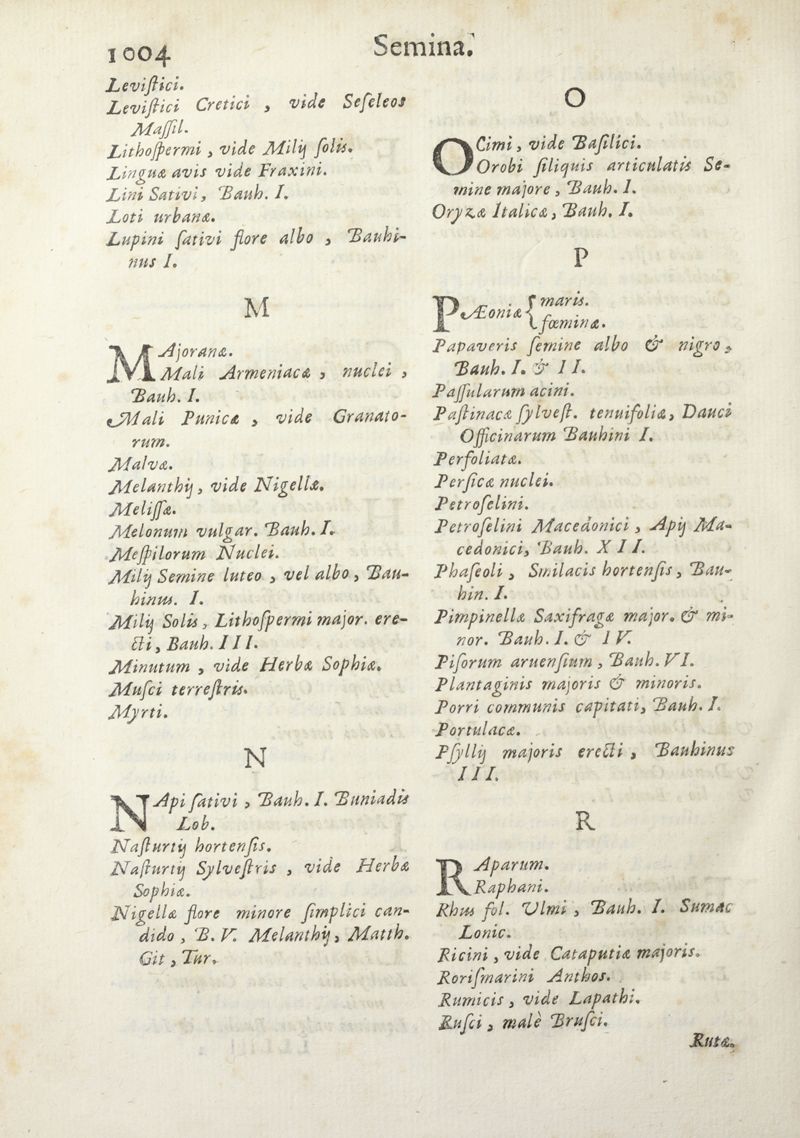 1004
Semina.
Leviſtici.
Leviſtici Cretici , vide Seſeleos
Maſſil.
Lithoſpermi , vide Milij ſolis.
Linguæ avis vide Fraxini.
Lini Sativi, Bauh. I.
Loti urbanæ.
Lupini ſativi flore albo , Bauhi-
nus I.
M
MAjoranæ.
Mali Armeniacæ , nuclei ,
Bauh. I.
Mali Punicæ , vide Granato-
rum.
Malvæ.
Melanthij, vide Nigellæ.
Meliſſæ.
Melonum vulgar. Bauh. I.
Meſpilorum Nuclei.
Milij Semine luteo , vel albo, Bau-
hinus. I.
Milij Solis, Lithoſpermi major. ere-
cti, Bauh. III.
Minutum , vide Herbæ Sophiæ.
Muſci terreſtris.
Myrti.
N
NApi ſativi , Bauh. I. Buniadis
Lob.
Naſturtij hortenſis.
Naſturtij Sylveſtris , vide Herbæ
Sophiæ.
Nigellæ flore minore ſimplici can-
dido , B. V. Melanthij, Matth.
Git , Tur.
O
OCimi, vide Baſilici.
Orobi ſiliquis articulatis Se-
mine majore , Bauh. I.
Oryzæ Italicæ, Bauh. I.
P
PÆoniæ { maris.
fœminæ.
Papaveris ſemine albo & nigro,
Bauh. I. & II.
Paſſularum acini.
Paſtinacæ ſylveſt. tenuifoliæ, Dauci
Officinarum Bauhini I.
Perfoliatæ.
Perſicæ nuclei.
Petroſelini.
Petroſelini Macedonici , Apij Ma-
cedonici, Bauh. XII.
Phaſeoli , Smilacis hortenſis, Bau-
hin. I.
Pimpinellæ Saxifragæ major. & mi-
nor. Bauh. I. & IV.
Piſorum aruenſium , Bauh. VI.
Plantaginis majoris & minoris.
Porri communis capitati, Bauh. I.
Portulacæ.
Pſyllij majoris erecti , Bauhinus
III.
R
RAparum.
Raphani.
Rhus fol. Vlmi , Bauh. I. Sumac
Lonic.
Ricini , vide Cataputiæ majoris.
Roriſmarini Anthos.
Rumicis , vide Lapathi.
Ruſci , malè Bruſci.
Rutæ.